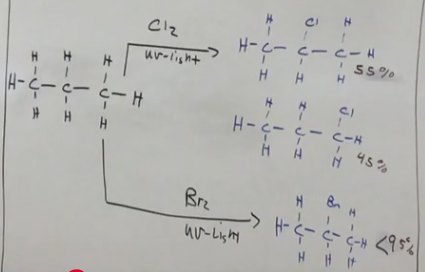 Cl2
uv-light
H Cl H
H-C-C-C-H
H H H
55%
H H H
H-C-C-C-H
H H H
H H Cl
H-C-C-C-H
H H H
45%
Br2
uv-Light
H Br H
H-C-C-C-H
H H H
<95%